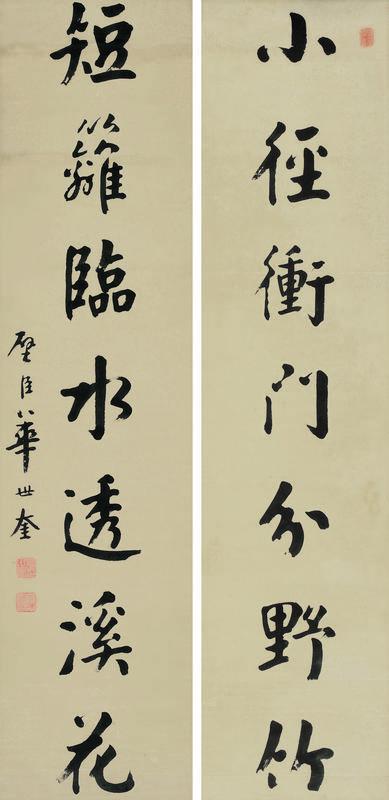 小徑衝門分野竹
短籬臨水透溪花
壁臣華世奎